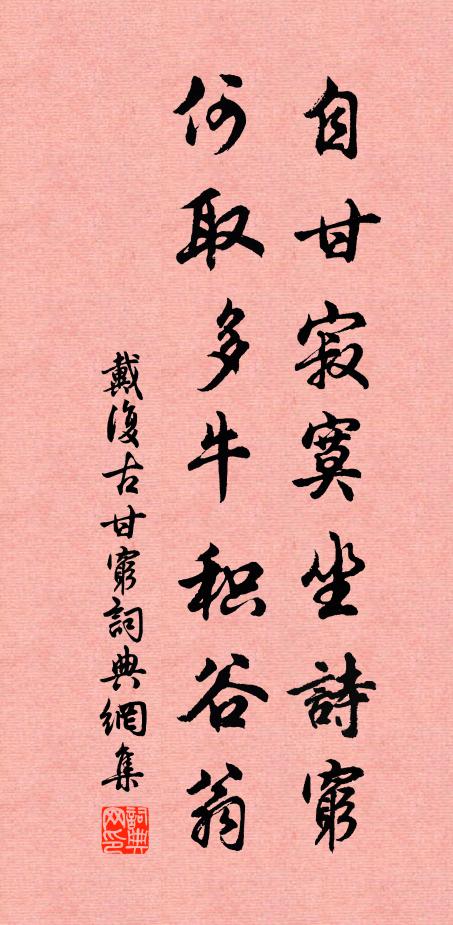 自甘寂寞坐詩窮
何取多牛积谷翁
戴復古甘窮詞典網集
詞典网印